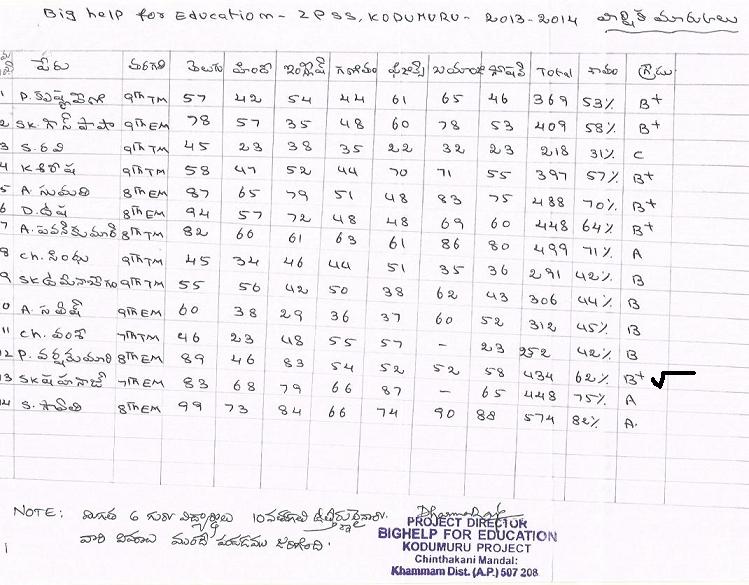 Big help for Education - ZPSS, KODUMURU - 2013-2014 వార్షిక మార్కులు
పేరు తరగతి తెలుగు హిందీ ఇంగ్లీష్ గణితం ఫిజిక్స్ బయాలజి సోషల్ Total శాతం గ్రేడు
1 P. కృష్ణవేణి 9th TM 57 42 54 44 61 65 46 369 53% B+
2 SK. గౌస్ పాషా 9th EM 78 57 35 48 60 78 53 409 58% B+
3 S. రవి 9th TM 45 23 38 35 22 32 23 218 31% C
4 K. శిరీష 9th TM 58 47 52 44 70 71 55 397 57% B+
5 A. సుమతి 8th EM 87 65 79 51 48 83 75 488 70% B+
6 D. దీప 8th EM 94 57 72 48 48 69 60 448 64% B+
7 A. పవన్ కుమార్ 8th TM 82 66 61 63 61 86 80 499 71% A
8 Ch. సింధు 9th TM 45 34 46 44 51 35 36 291 42% B
9 SK. 9th TM 55 56 42 50 38 62 43 306 44% B
0 A. 9th EM 60 38 29 36 37 60 52 312 45% B
11 Ch. వంశీ 7th TM 46 23 48 55 57 - 23 252 42% B
12 P. 8th EM 89 46 83 54 52 52 58 434 62% B+ √
13 SK. షహనాజ్ 7th EM 83 68 79 66 87 - 65 448 75% A
14 S. 8th EM 99 73 84 66 74 90 88 574 82% A.
NOTE: మిగతా 6 గురు విద్యార్థులు 10వ తరగతి ఉత్తీర్ణులైనారు.
వారి ముందే జరిగింది.
PROJECT DIRECTOR
BIGHELP FOR EDUCATION
KODUMURU PROJECT
Chinthakani Mandal:
Khammam Dist. (A.P.) 507 208